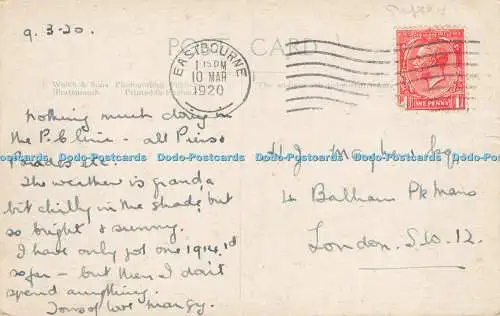 9.3-20.
POST CARD
EASTBOURNE
1.15PM
10 MAR
1920
ONE PENNY
Welch & Sons
Portsmouth
nothing much doing in
the P.C line - all Piers
Parades etc.
The weather is grand, a
bit chilly in the shade, but
so bright & sunny.
I have only got one 1914.1d
so far - but then I don't
spend anything.
Tons of love Margy.
H.J. Mayhew Esq
4 Balham Pk Mans
London. S.W. 12.
Dodo-Postcards Dodo-Postcards Dodo-Postcards Dodo-Postcards Dodo-Postcards